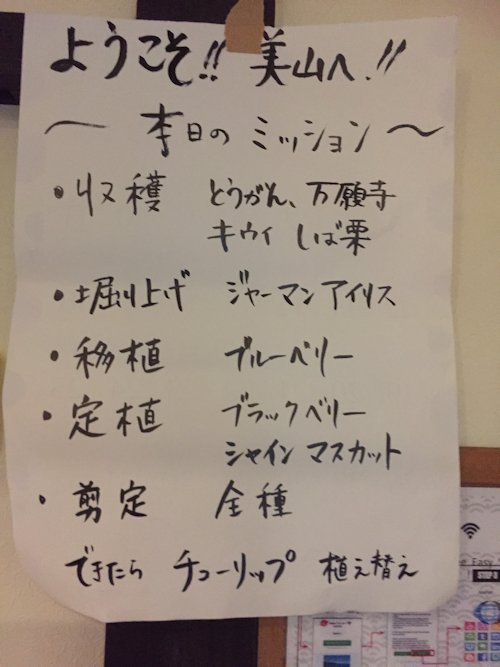 ようこそ!! 美山へ!!
〜 本日の ミッション 〜
・収穫 とうがん、万願寺
キウイ しば栗
・堀り上げ ジャーマンアイリス
・移植 ブルーベリー
・定植 ブラックベリー
シャイン マスカット
・剪定 全種
できたら チューリップ 植え替え